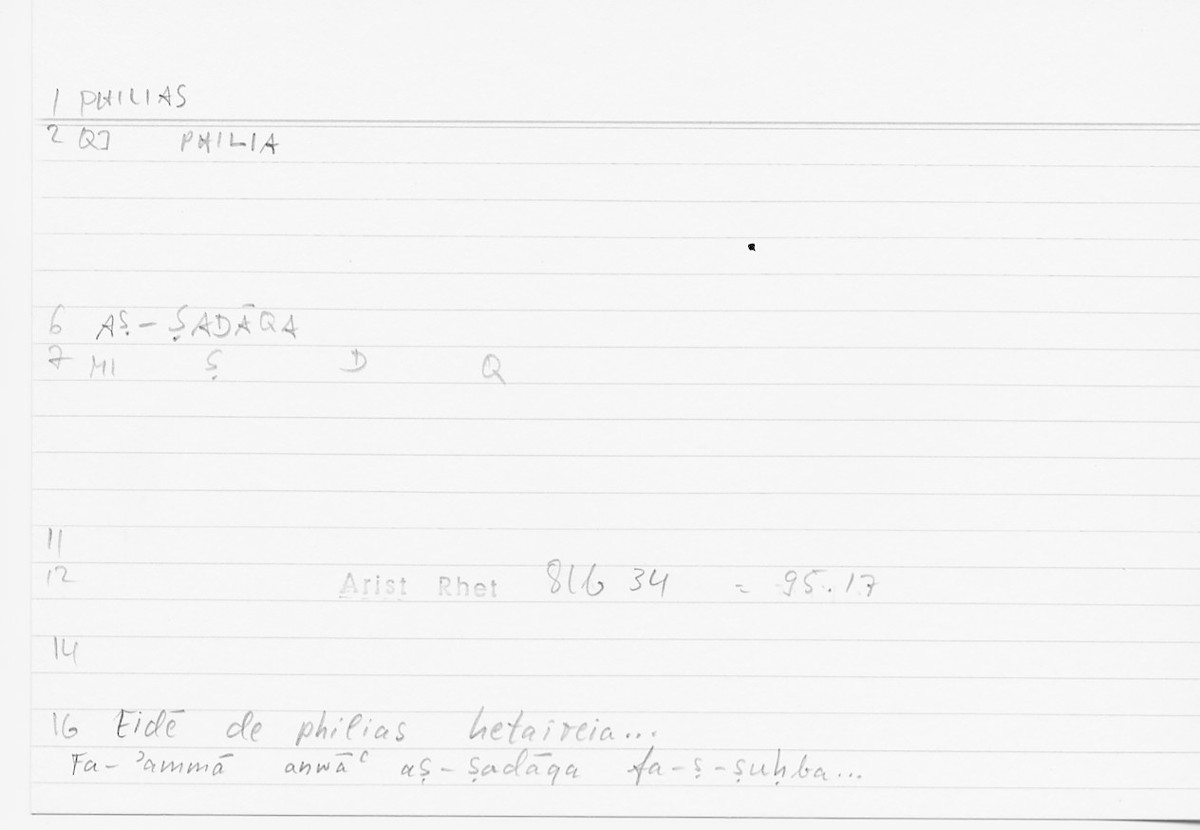 1 PHILIAS
2 QJ PHILIA
6 AṢ-ṢADĀQA
7 MI Ṣ D Q
11
12 Arist Rhet 81b 34 = 95.17
14
16 Eidē de philias hetaireia...
Fa-ʾammā anwāʿ aṣ-ṣadāqa fa-ṣ-ṣuḥba...